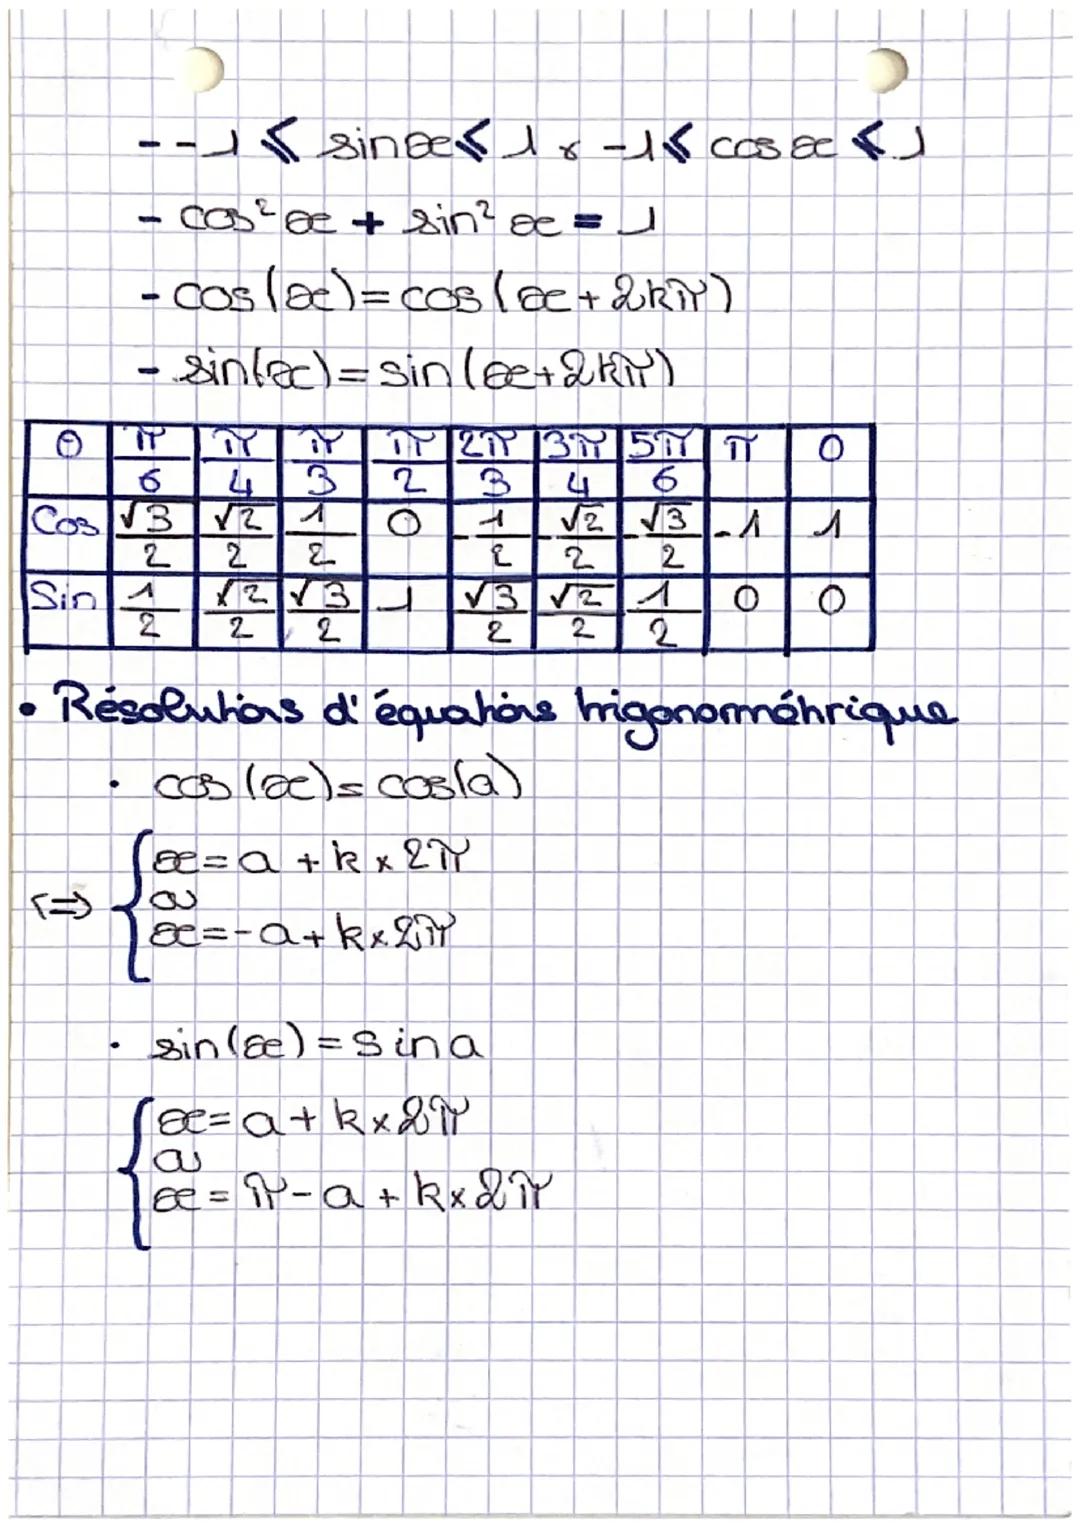 - -1 ⩽ sin x ⩽ 1 x -1 ⩽ cos x ⩽ 1
- cos² x + sin² x = 1
- cos(x) = cos(x + 2kπ)
- sin(x) = sin(x + 2kπ)
θ | π/6 | π/4 | π/3 | π/2 | 2π/3 | 3π/4 | 5π/6 | π | 0
Cos | √3/2 | √2/2 | 1/2 | 0 | -1/2 | -√2/2 | -√3/2 | -1 | 1
Sin | 1/2 | √2/2 | √3/2 | 1 | √3/2 | √2/2 | 1/2 | 0 | 0
• Résolutions d'équations trigonométrique
• cos(x) = cos(a)
x = a + k x 2π
⇔ { ou
x = -a + k x 2π
• sin(x) = sin a
x = a + k x 2π
{ ou
x = π - a + k x 2π